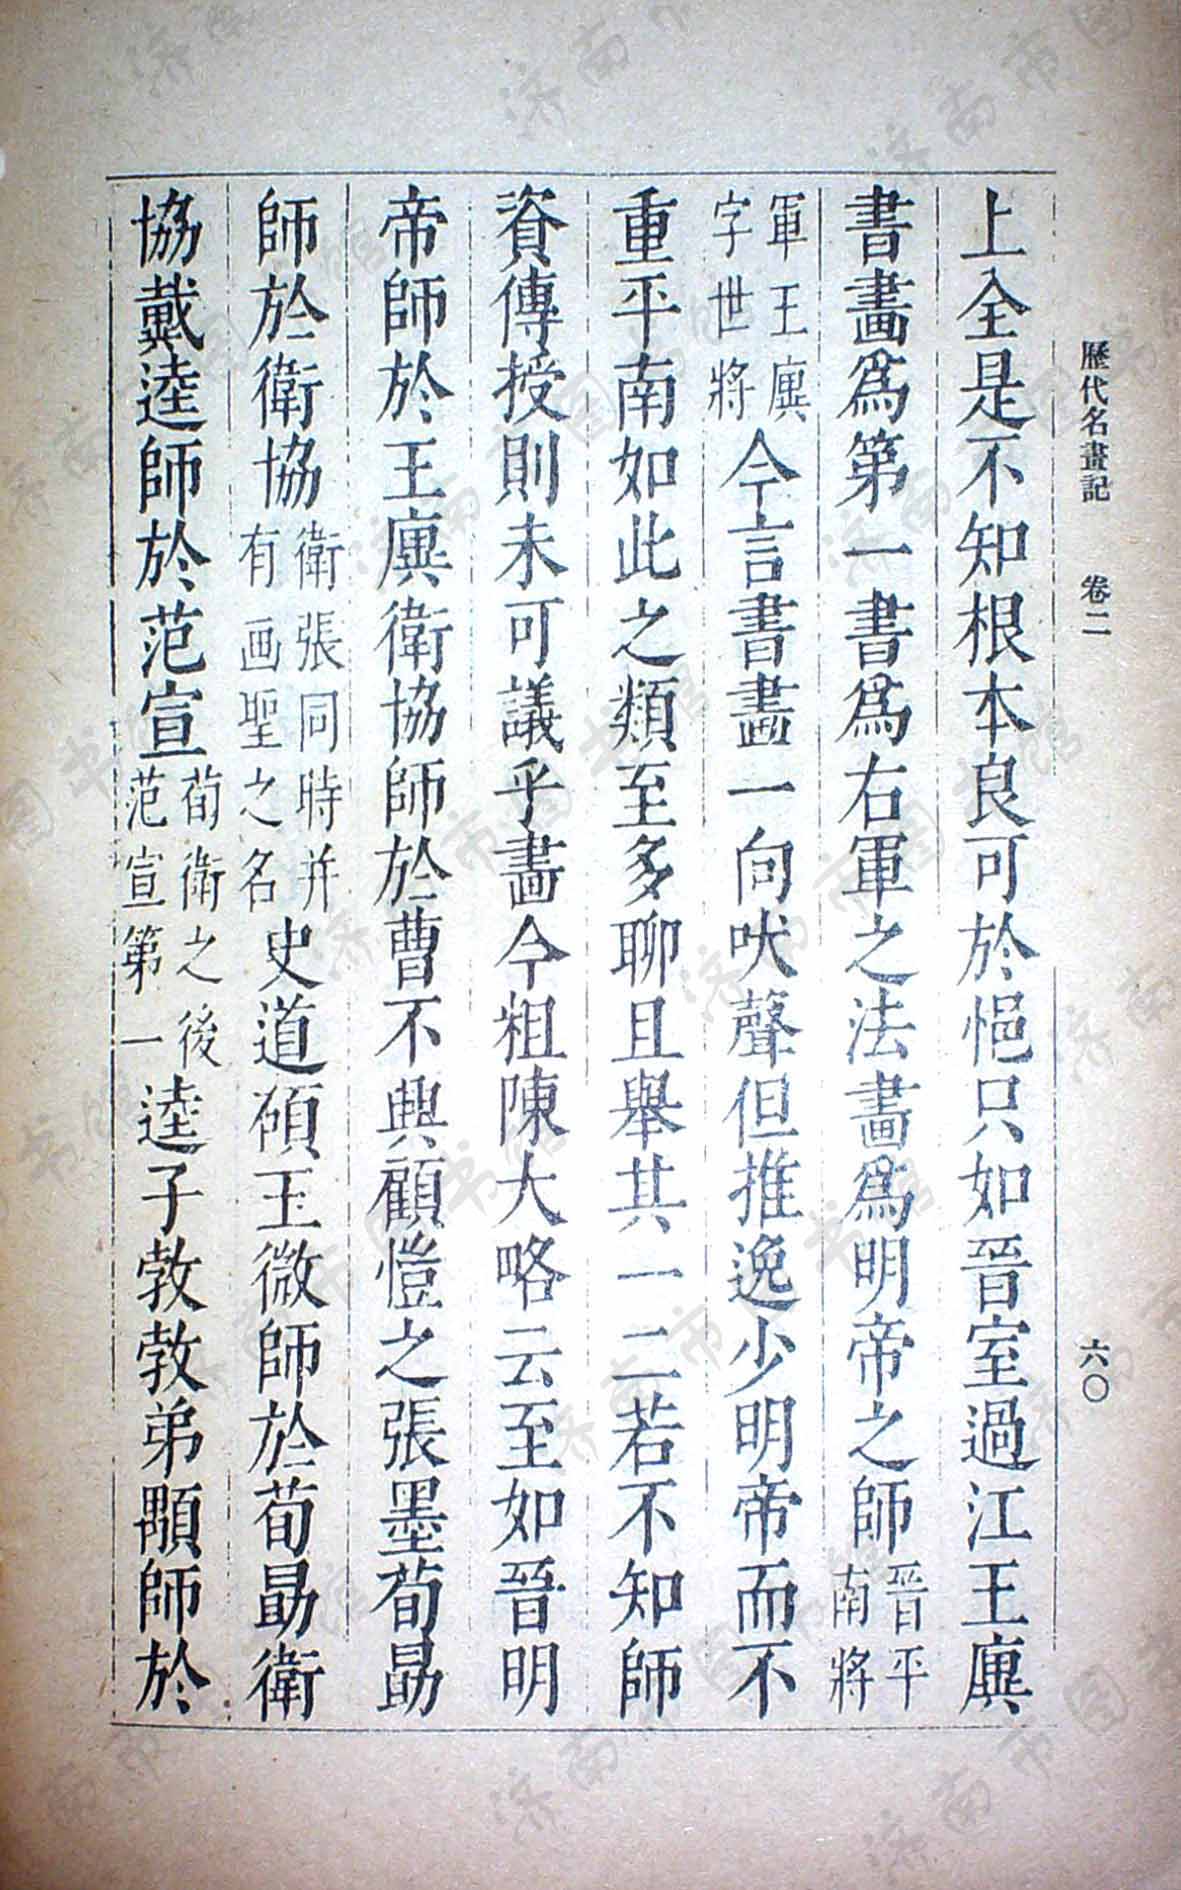 歷代名畫記　卷二　六〇
上全是不知根本良可於悒只如晉室過江王廙
書畫爲第一書爲右軍之法畫爲明帝之師晉平南將
軍王廙字世將今言書畫一向吠聲但推逸少明帝而不
重平南如此之類至多聊且舉其一二若不知師
資傳授則未可議乎畫今粗陳大略云至如晉明
帝師於王廙衛協師於曹不興顧愷之張墨荀勗
師於衛協衛張同時并有画聖之名史道碩玉微師於荀勗衛
協戴逵師於范宣荀衛之後范宣第一逵子㪍㪍弟顒師於
济南市图书馆